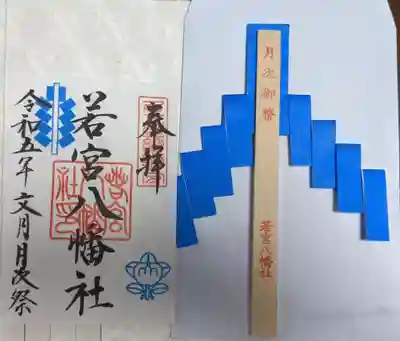 奉拝
若宮八幡社
令和五年文月月次祭
月次御幣
若宮八幡社